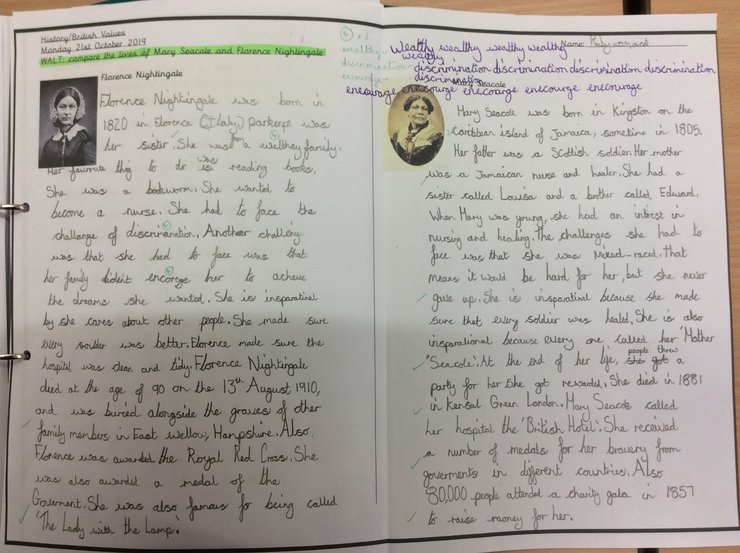 History/British Values
Monday 21st October 2019
WALT: compare the lives of Mary Seacole and Florence Nightingale
Florence Nightingale
Florence Nightingale was born in
1820 in Florence (Italy) parkenpe was
her sister. She was a wealthey family.
Her faviourite thig to do was reading books.
She was a bookworm. She wanted to
become a nurse. She had to face the
challange of discrimination. Another challeng
was that she had to face was that
her family dident encorege her to achieve
the dreams she wanted. She is insparatinal
by she cares about other people. She made sure
every soulder was better. Florence made sure the
hospital was clean and tidy. Florence Nightingale
died at the age of 90 on the 13th August 1910,
and was buried alongside the graves of other
family members in East Wellow, Hampshire. Also
Florence was awarded the Royal Red Cross. She
was also awarded a medal of the
Goverment. She was also famous for being called
'The Lady with the Lamp'.
x3
wealthy
discrimination
encourage
Wealthy wealthy wealthy wealthy
wealthy
discrimination discrimination discrimination discrimination
discrimination
encourage encourage encourage encourage encourage
Name:
Mary Seacole
Mary Seacole was born in Kingston on the
Caribbean island of Jamaica, sometime in 1805.
Her father was a Scottish soldier. Her mother
was a Jamaican nurse and healer. She had a
sister called Louisa and a brother called Edward.
When Mary was young, she had an intrest in
nursing and healing. The challenges she had to
face was that she was mixed-raced. That
means it would be hard for her, but she never
gave up. She is insparatinal because she made
sure that every soldier was heald. She is also
insparational because every one called her 'Mother
Seacole'. At the end of her life, people threw a
party for her she got rewarded. She died in 1881
in Kensal Green London. Mary Seacole called
her hospital the 'British Hotel'. She received
a number of medals for her bravery from
goverments in different countries. Also
80,000 people attended a charity gala in 1857
to raise money for her.